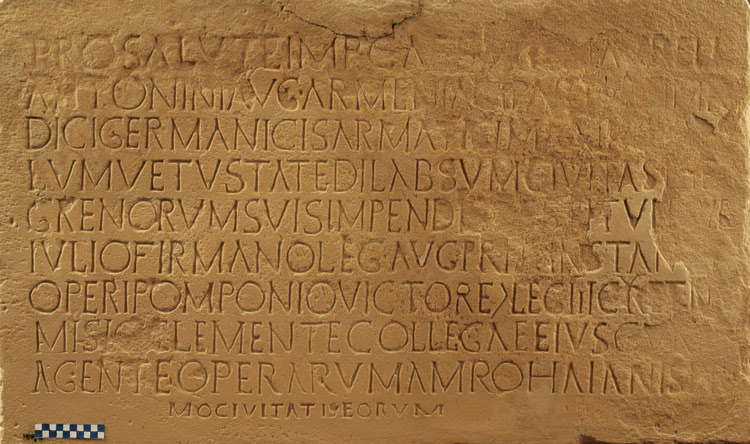 PROSALVTEIMPCA AVRELI
ANTONINIAVGARMENIACIPAR ME
DICIGERMANICISARMATI
LVMVETVSTATEDILABSVMCIVITAS
GRENORVMSVISIMPENDI TVI
IVLIOFIRMANOLEGAVGPRPRINSTAN
OPERIPOMPONIOVICTORE>LEGIIICYREN
MISIOCLEMENTECOLLEGAEEIVSCV
AGENTEOPERARVMAMROHAIANIS
MOCIVITATISEORVM